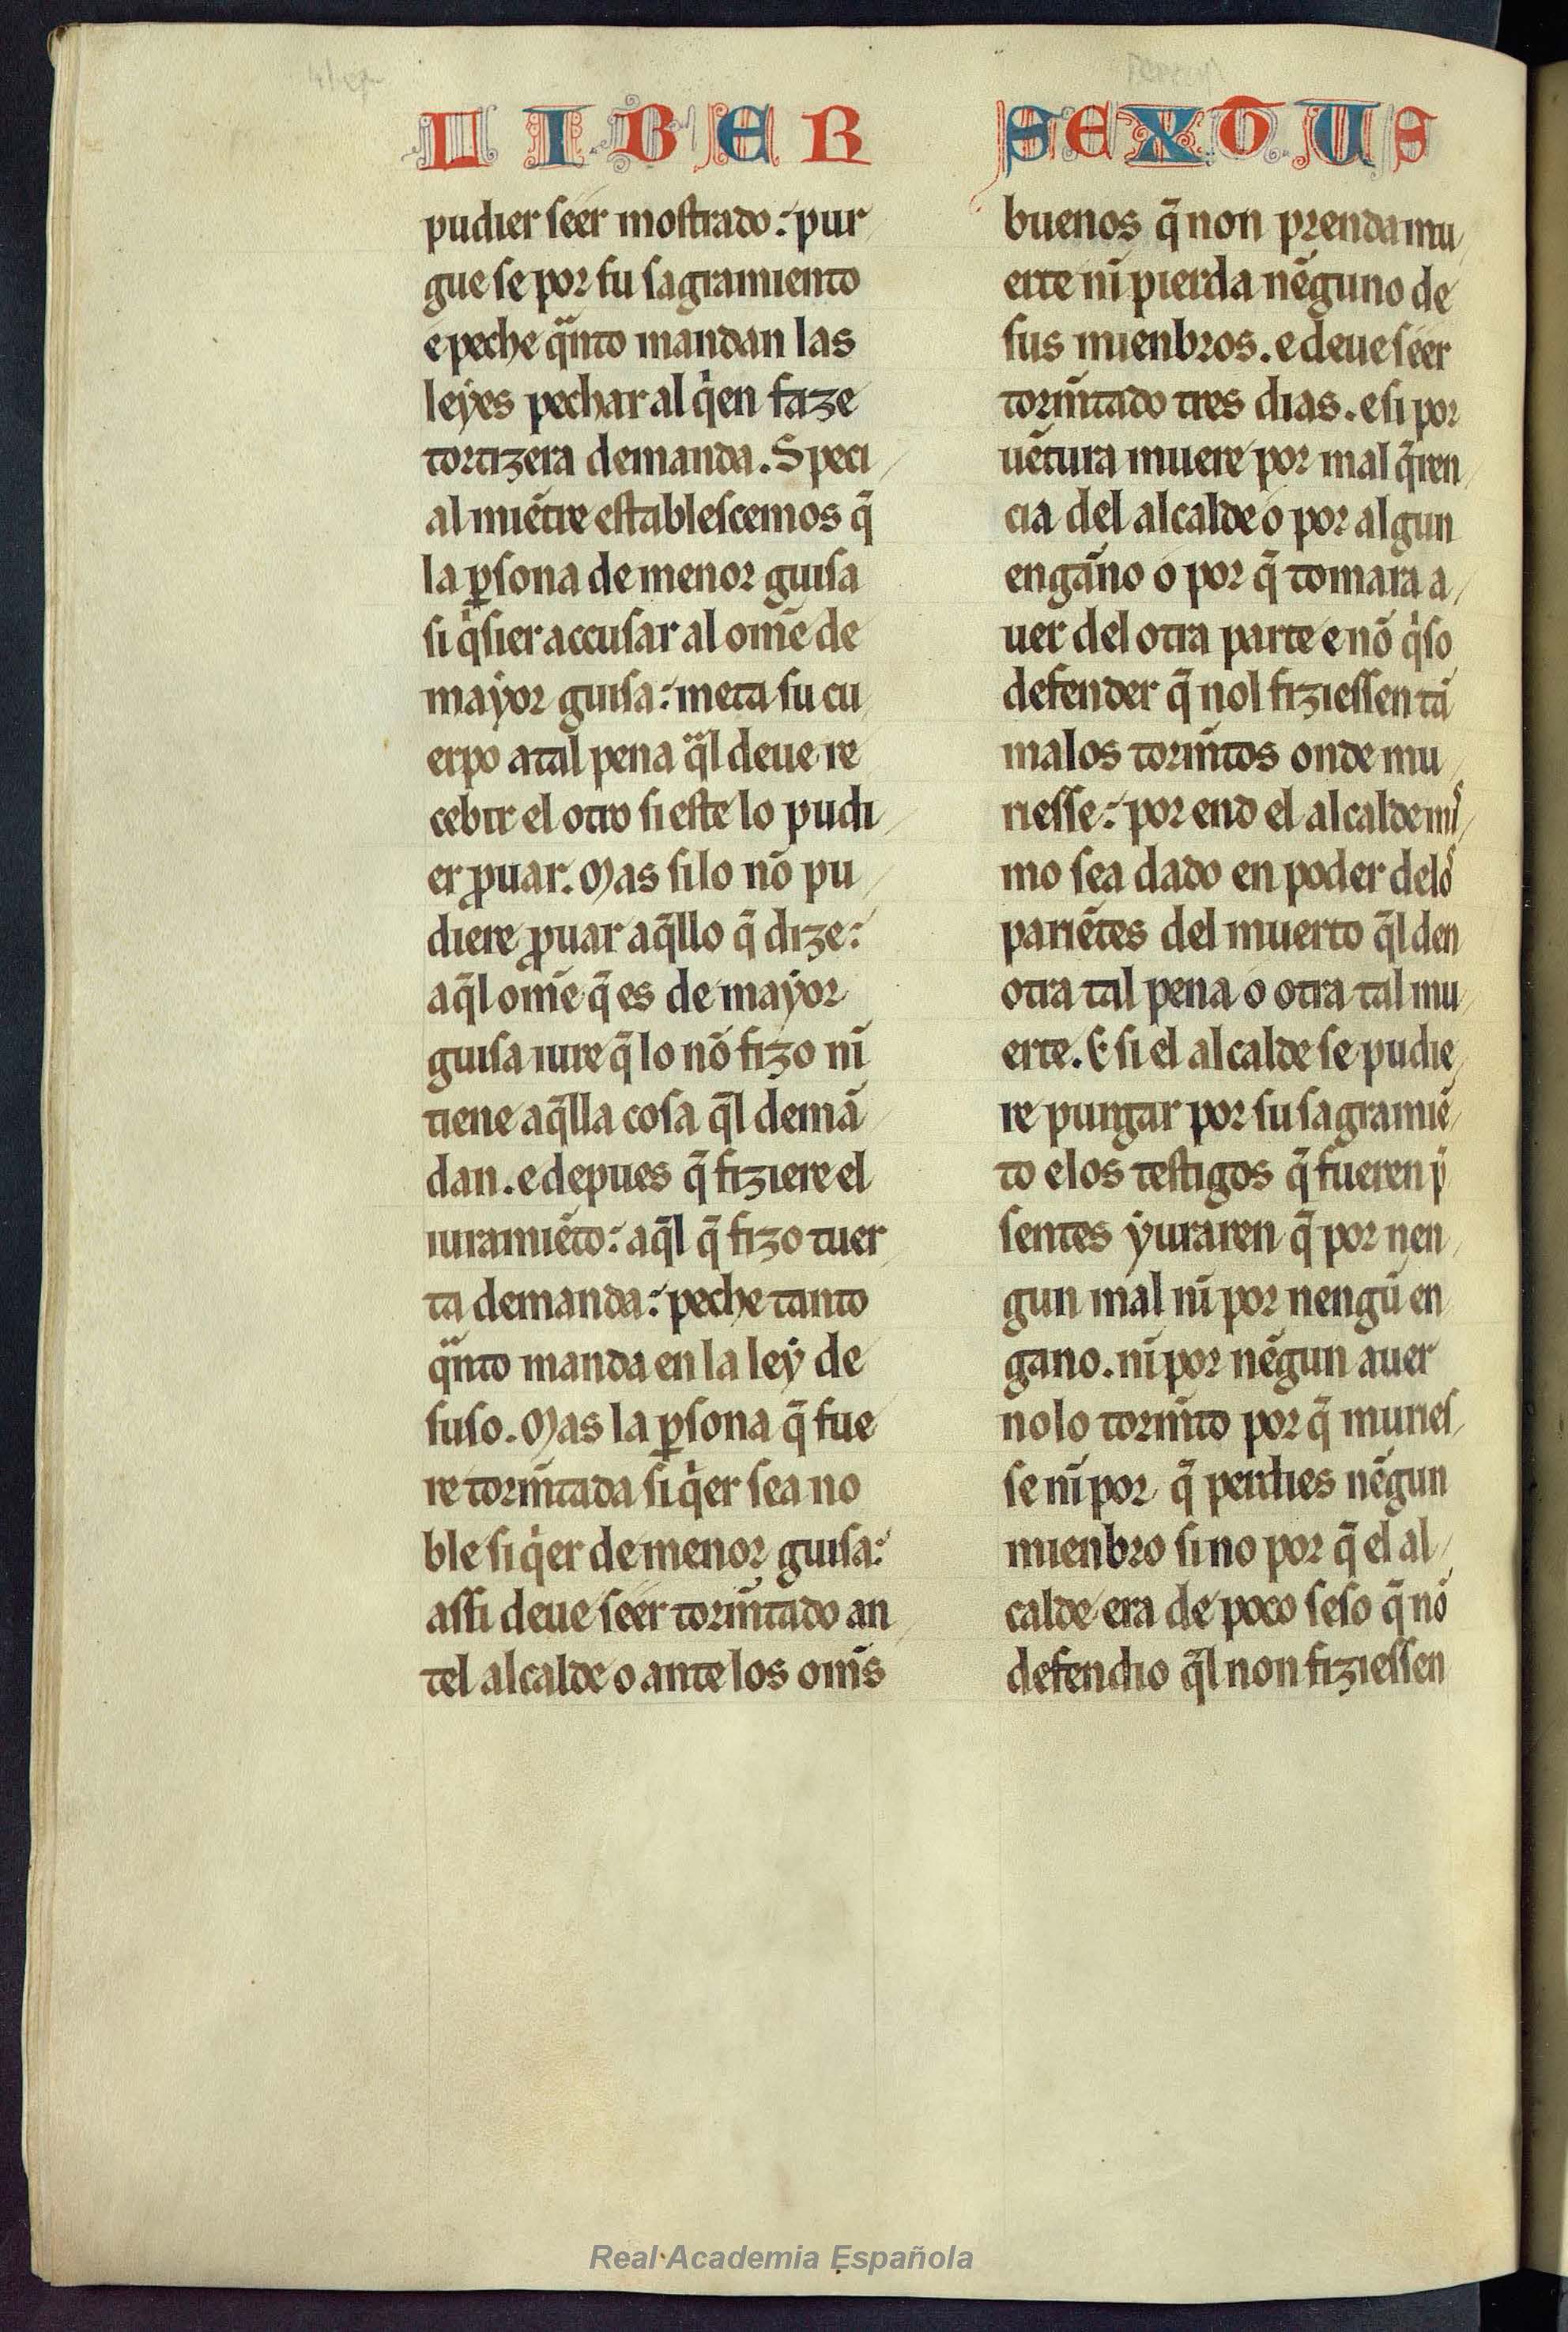 LIBER
pudier seer mostrado: pur
gue se por su sagramiento
e peche q̃nto mandan las
leẏes pechar al q̇en faze
tortizera demanda. Speci
al miẽtre establescemos q̃
la ꝑsona de menor guisa
si q̇sier accusar al om̃e de
maẏor guisa: meta su cu
erpo atal pena q̃l deue re
cebir el otro si este lo pudi
er ꝓuar. Mas silo nõ pu
diere ꝓuar aq̃llo q̃ dize:
aq̃l om̃e q̃ es de maẏor
guisa iure q̃ lo nõ fizo nĩ
tiene aq̃lla cosa q̃l demã
dan. e depues q̃ fiziere el
iuramiẽto: aq̃l q̃ fizo tuer
ta demanda: peche tanto
q̃nto manda en la leẏ de
suso. Mas la ꝑsona q̃ fue
re torm̃tada si q̇er sea no
ble si q̇er de menor guisa:
assi deue seer torm̃tado an
tel alcalde o ante los om̃s
SEXTUS
buenos q̃ non prenda mu
erte nĩ pierda nẽguno de
sus mienbros. e deue seer
torm̃tado tres dias. e si por
uẽtura muere por mal q̃ren
cia del alcalde o por algun
engãno o por q̃ tomara a
uer del otra parte e nõ q̇so
defender q̃ nol fiziessen tã
malos torm̃tos onde mu
riesse: por end el alcalde mis
mo sea dado en poder delos
pariẽtes del muerto q̃l den
otra tal pena o otra tal mu
erte. E si el alcalde se pudie
re purgar por su sagramiẽ
to e los testigos q̃ fueren p̃
sentes ẏuraren q̃ por nen
gun mal nĩ por nengũ en
gano. nĩ por nẽgun auer
nolo torm̃to por q̃ muries
se nĩ por q̃ perdies nẽgun
mienbro si no por q̃ el al
calde era de poco seso q̃ nõ
defendio q̃l non fiziessen
Real Academia Española